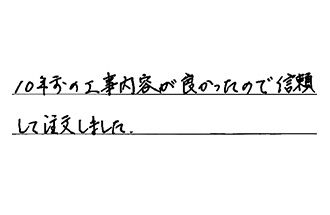 10年前の工事内容が良かったので信頼
して注文しました.